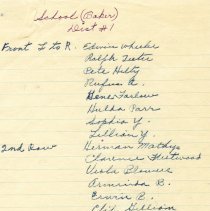 School (Baker)
Dist #1
Front L to R. Edwin Wheeler
Ralph Teeter
Pete Hilty
Rufus A.
Gene Farlow
Hulda Parr
Sophia Y.
Lillian Y.
2nd Row Herman Mathys
Clarence Fleetwood
Veola Brower
Armerinda B.
Erwin B.